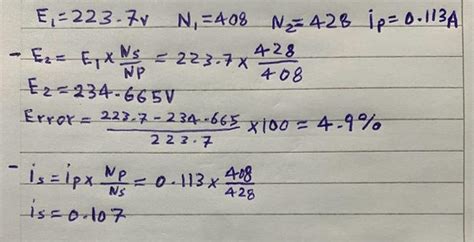 E₁=223.7v N₁=408 N₂=428 ip=0.113A
- E₂ = E₁ × Ns/Np = 223.7 × 428/408
E₂ = 234.665V
Error = 223.7-234.665/223.7 ×100 = 4.9%
- is = ip × Np/Ns = 0.113 × 408/428
is = 0.107